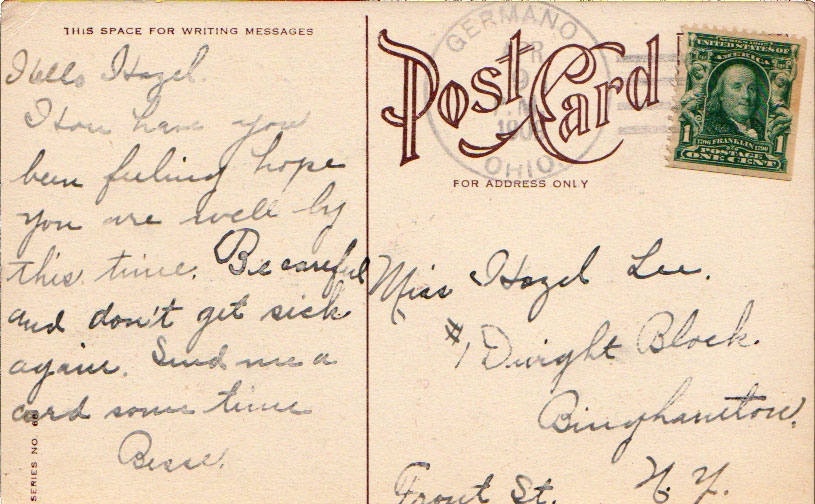 THIS SPACE FOR WRITING MESSAGES
Hello Hazel.
How have you
been feeling hope
you are well by
this time. Be careful
and don't get sick
again. Send me a
card some time
Besse.
SERIES NO.
GERMANO
APR
9
M
OHIO
Post Card
FOR ADDRESS ONLY
UNITED STATES OF
AMERICA
1 1
FRANKLIN
POSTAGE
ONE CENT
Miss Hazel Lee.
#1 Dwight Block.
Binghamton,
Front St. N.Y.